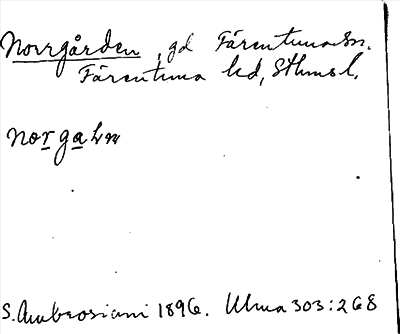 Norrgården, gd Färentuna sn.
Färentuna hd, Sthms l.
Norgaḷn
S. Ambrosiani 1896. Ulma 303:268